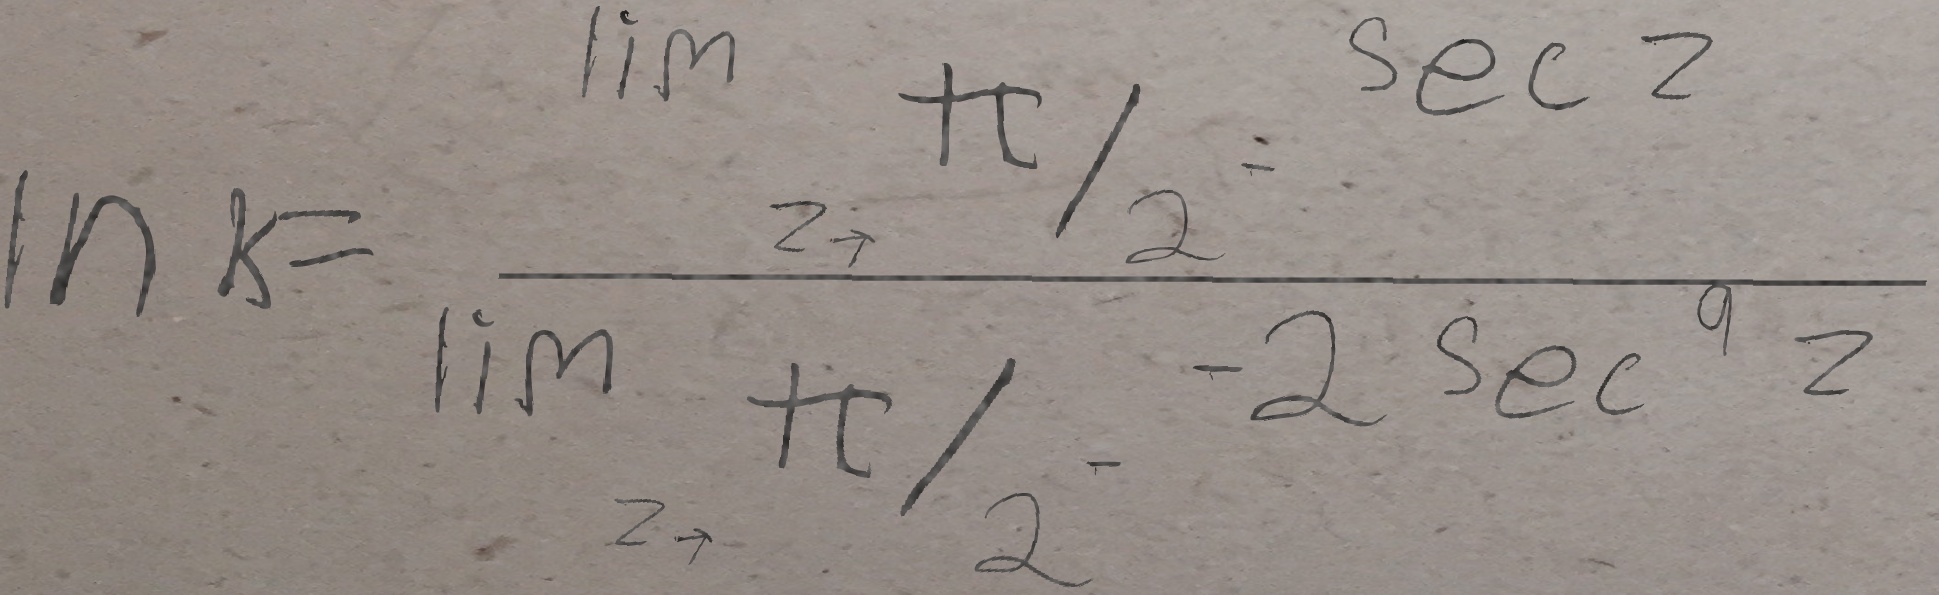 ln k = \frac{\lim_{z \to \pi/2^-} \sec z}{\lim_{z \to \pi/2^-} -2 \sec^9 z}